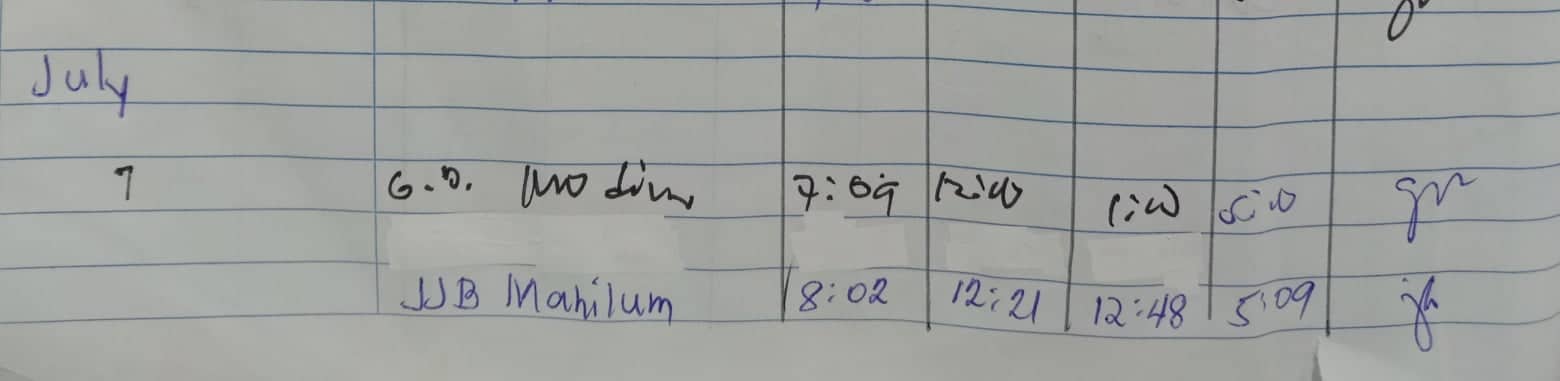 July
7 G.D. 7:09 12:00 1:00 5:00
JJB Mahilum 8:02 12:21 12:48 5:09